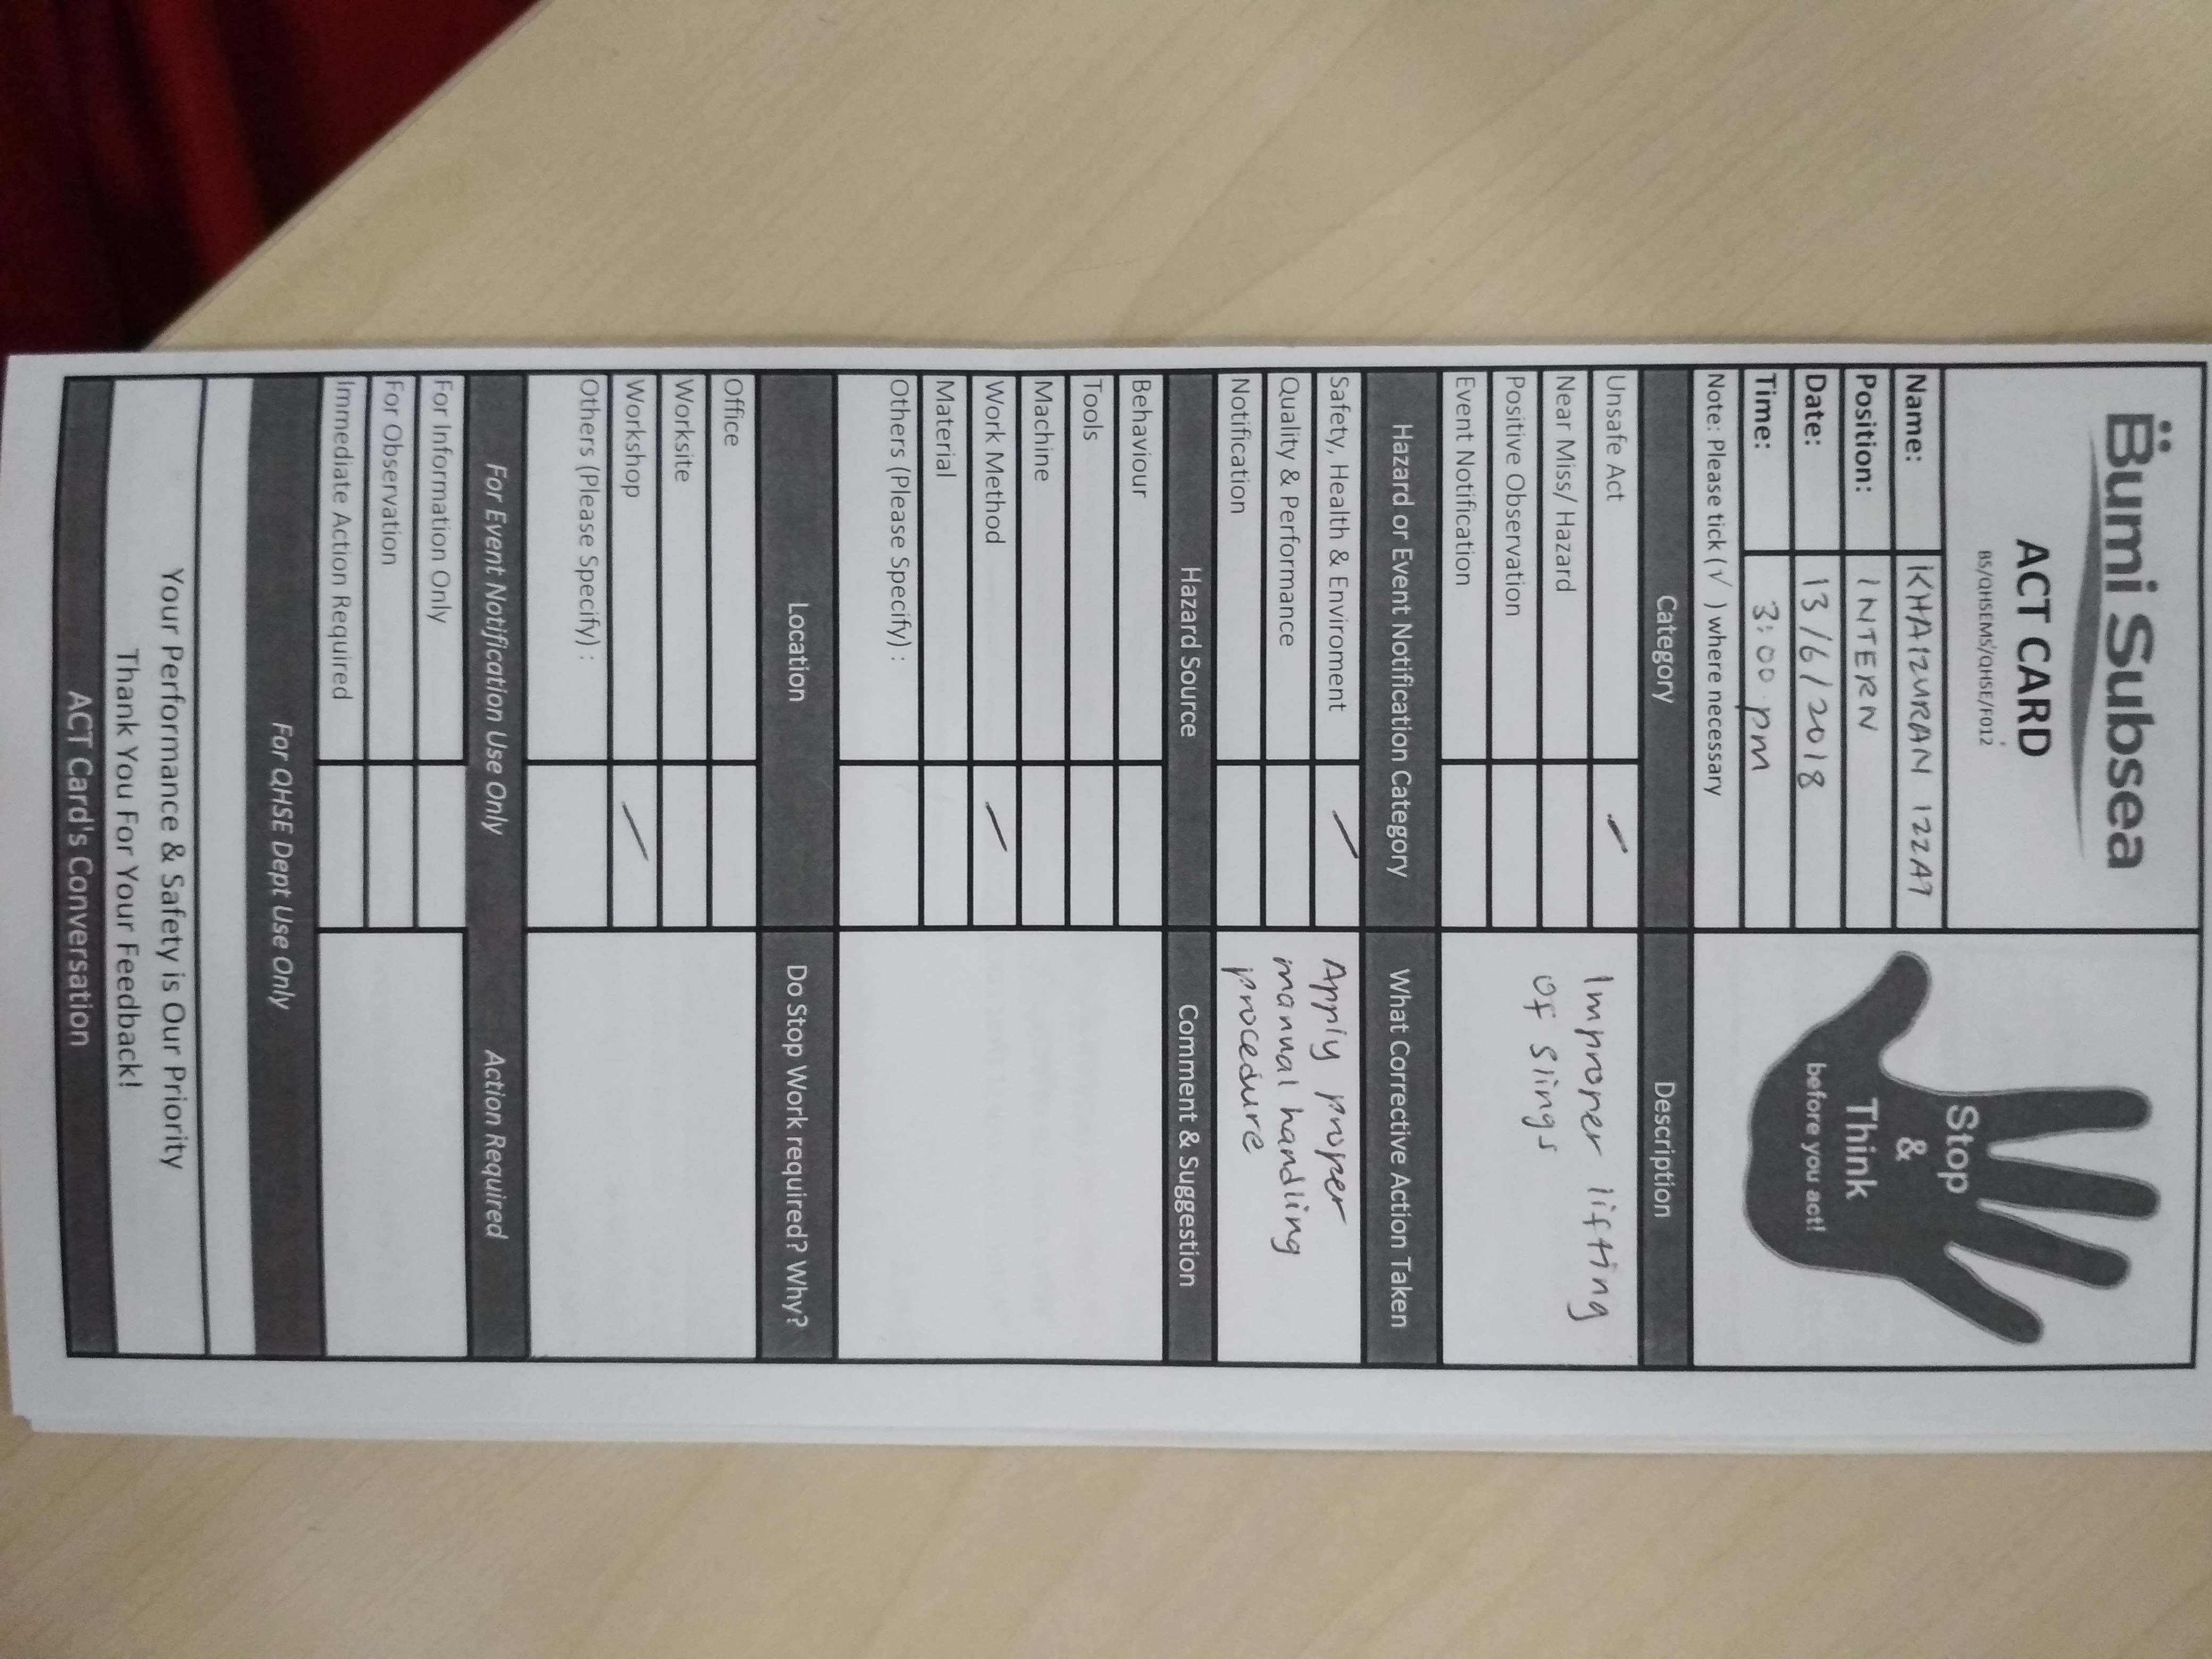 Bumi Subsea
ACT CARD
BS/QHSEMS/QHSE/F012
Stop
&
Think
before you act!
Name: KHAIZURAN IZZAT
Position: INTERN
Date: 13/6/2018
Time: 3:00 pm
Note: Please tick (√ ) where necessary
Category Description
Unsafe Act / Improper lifting
Near Miss/ Hazard of slings
Positive Observation
Event Notification
Hazard or Event Notification Category What Corrective Action Taken
Safety, Health & Enviroment / Apply proper
Quality & Performance manual handling
Notification procedure
Hazard Source Comment & Suggestion
Behaviour
Tools
Machine
Work Method /
Material
Others (Please Specify) :
Location Do Stop Work required? Why?
Office
Worksite
Workshop /
Others (Please Specify) :
For Event Notification Use Only Action Required
For Information Only
For Observation
Immediate Action Required
For QHSE Dept Use Only
Your Performance & Safety is Our Priority
Thank You For Your Feedback!
ACT Card's Conversation